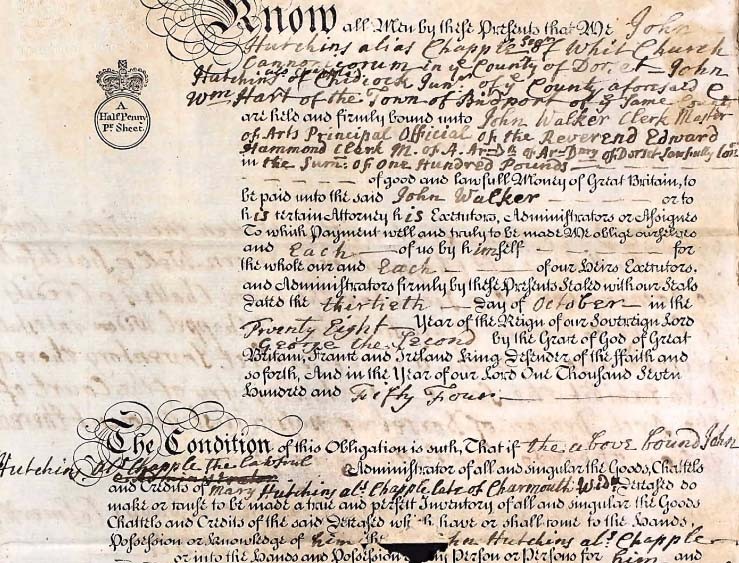 Know all Men by these Presents that We John
Hutchins alias Chapple Senr of Whit Church
Cannonicorum in ye County of Dorset — John
Hutchins als Chapple of Chidcock Junr of ye County aforesaid &
Wm Hart of the Town of Bridport of ye Same County
A
Half Penny
Pr Sheet.
are held and firmly bound unto John Walker Clerk Master
of Arts Principal Official of the Reverend Edward
Hammond Clerk M. of A. Ar-Dn of Ar-Dnry of Dorset Lawfully Con
in the Sum of One Hundred Pounds
of good and lawfull Money of Great Britain, to
be paid unto the said John Walker — or to
his certain Attorney his Executors, Administrators or Assignes
To which Payment well and truly to be made We oblige ourselves
and Each — of us by himself — for
the whole our and Each — of our Heirs Executors,
and Administrators firmly by these Presents Sealed with our Seals
dated the thirtieth — day of October — in the
Twenty Eight — Year of the Reign of our Sovereign Lord
George the Second by the Grace of God of Great
Britain, France and Ireland King Defender of the ffaith and
so forth, And in the Year of our Lord One Thousand Seven
Hundred and Fifty Four
The Condition of this Obligation is such, That if the above bound John
Hutchins als Chapple the Lawful
Administrator of all and singular the Goods, Chattels
and Credits of Mary Hutchins als Chapple late of Charmouth Widw Deceased do
make or cause to be made a true and perfect Inventory of all and singular the Goods
Chattels and Credits of the said Deceased which have or shall come to the Hands,
Possession or Knowledge of him the John Hutchins als Chapple
or into the Hands and Possession of any Person or Persons for him and